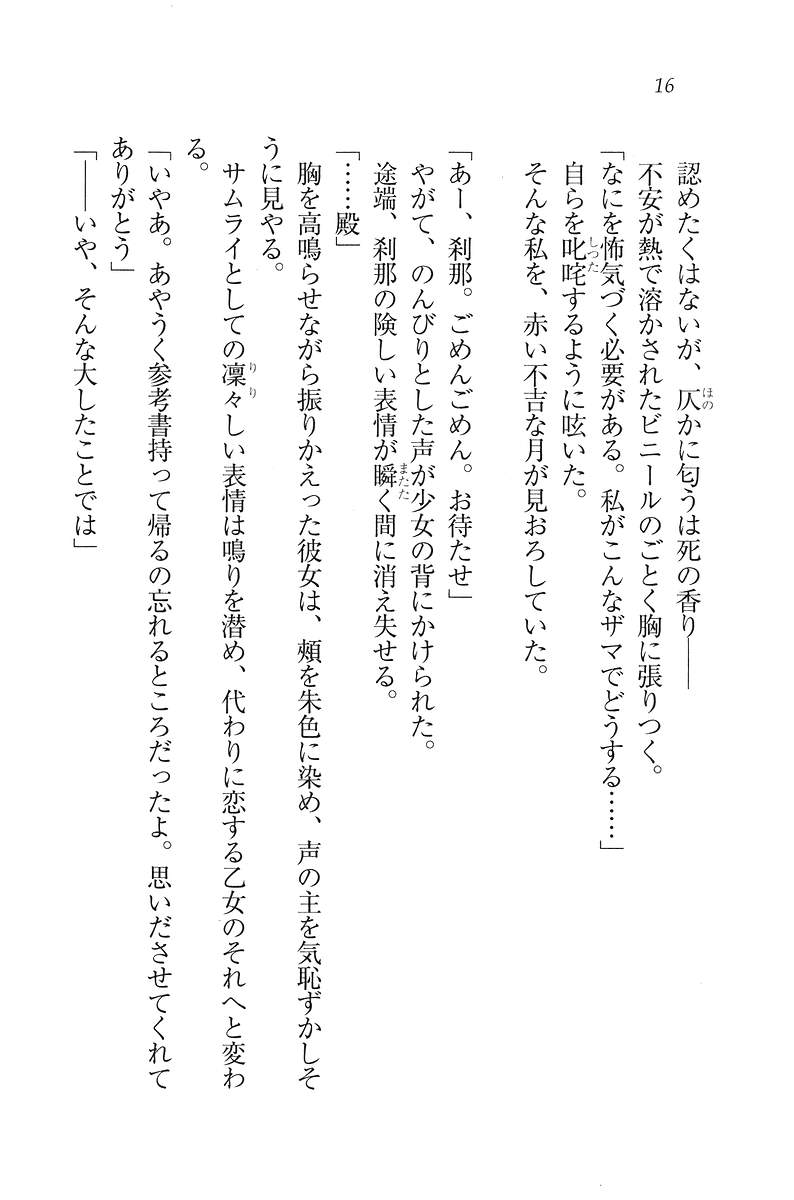 16
認めたくはないが、仄かに匂うは死の香り――
不安が熱で溶かされたビニールのごとく胸に張りつく。
「なにを怖気づく必要がある。私がこんなザマでどうする……」
自らを叱咤するように呟いた。
そんな私を、赤い不吉な月が見おろしていた。
「あー、刹那。ごめんごめん。お待たせ」
やがて、のんびりとした声が少女の背にかけられた。
途端、刹那の険しい表情が瞬く間に消え失せる。
「……殿」
胸を高鳴らせながら振りかえった彼女は、頬を朱色に染め、声の主を気恥ずかしそ
うに見やる。
サムライとしての凜々しい表情は鳴りを潜め、代わりに恋する乙女のそれへと変わ
る。
「いやあ。あやうく参考書持って帰るの忘れるところだったよ。思いださせてくれて
ありがとう」
「――いや、そんな大したことでは」